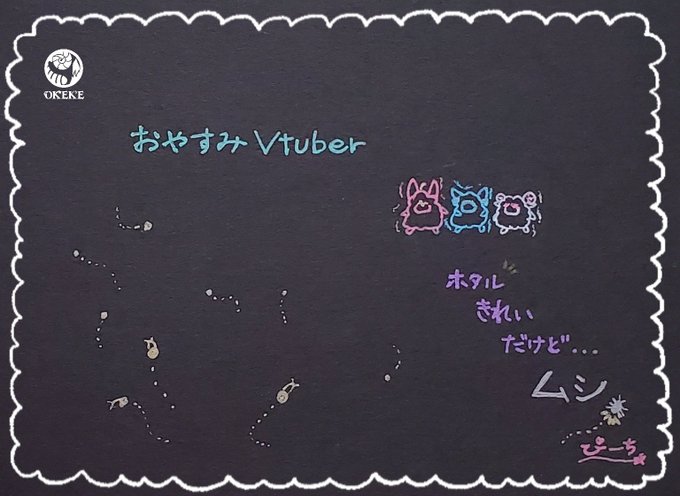 OKEKE
おやすみVtuber
ホタル
きれい
だけど...
ムシ
ぴーち